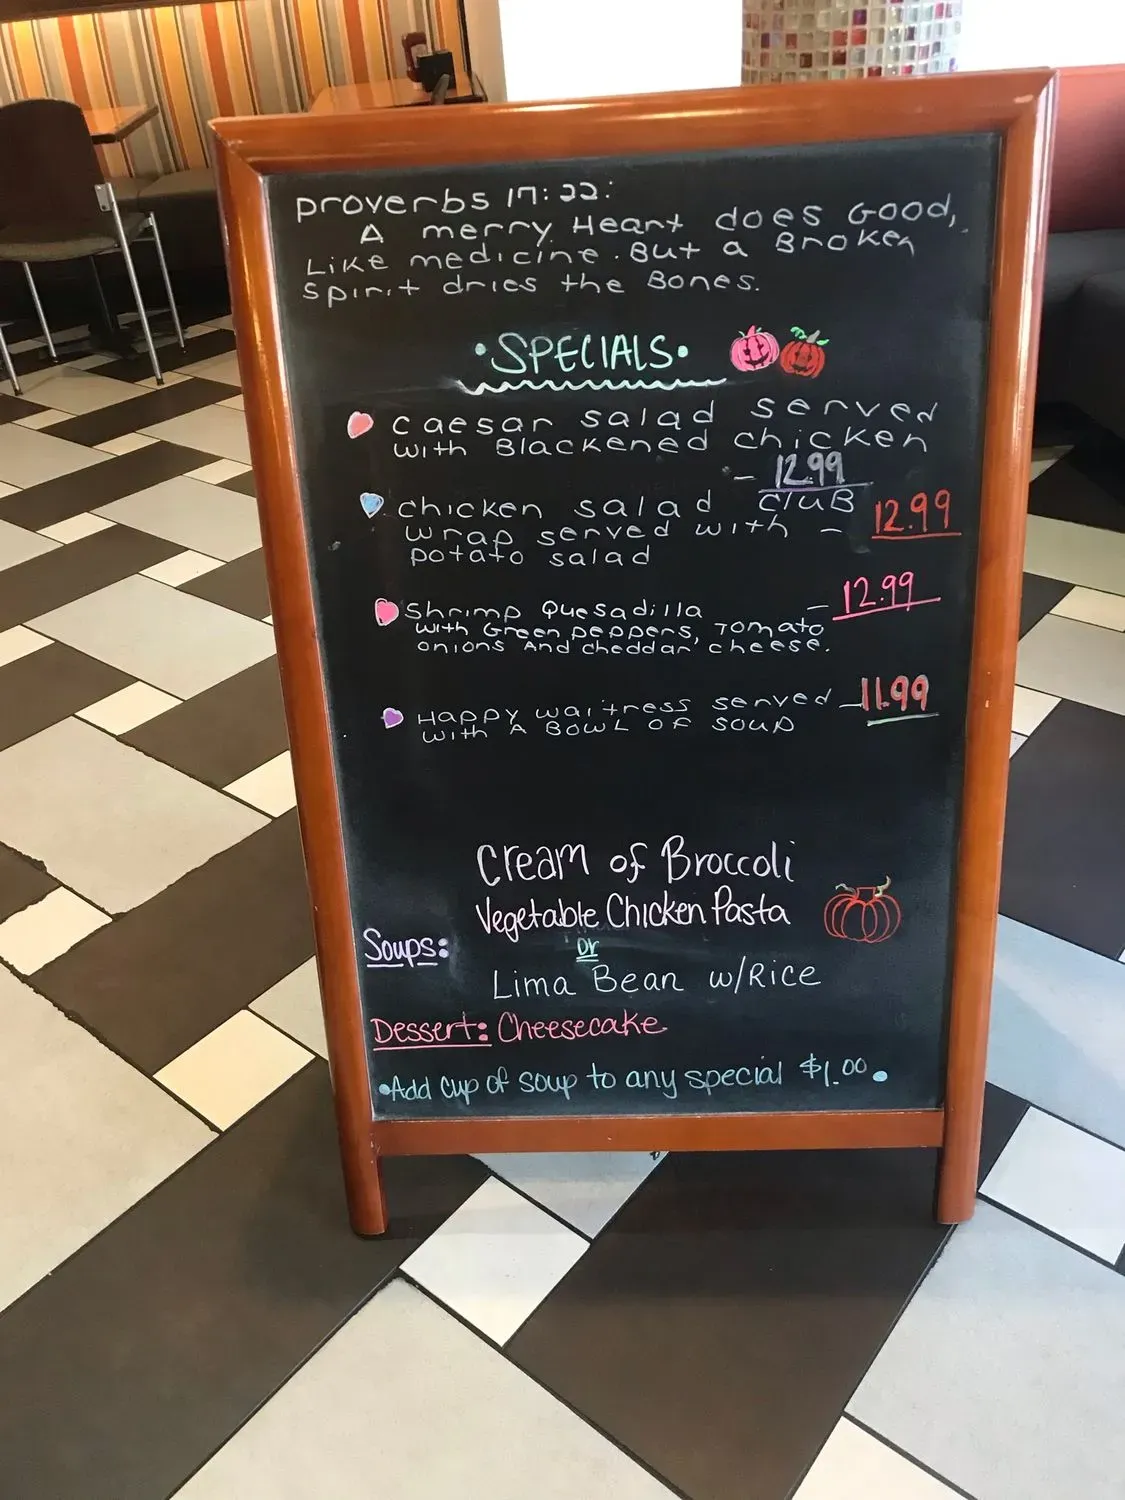 Proverbs 17:22:
A merry Heart does Good,
Like medicine. But a Broken
Spirit dries the Bones.
•SPECIALS•
caesar salad served
with Blackened chicken
- 12.99
chicken salad club
wrap served with - 12.99
potato salad
Shrimp Quesadilla - 12.99
with Green peppers, Tomato
onions And cheddar cheese.
Happy waitress served - 11.99
with A Bowl of soup
Cream of Broccoli
Vegetable Chicken Pasta
Soups: or
Lima Bean w/Rice
Dessert: Cheesecake
•Add cup of soup to any special $1.00.